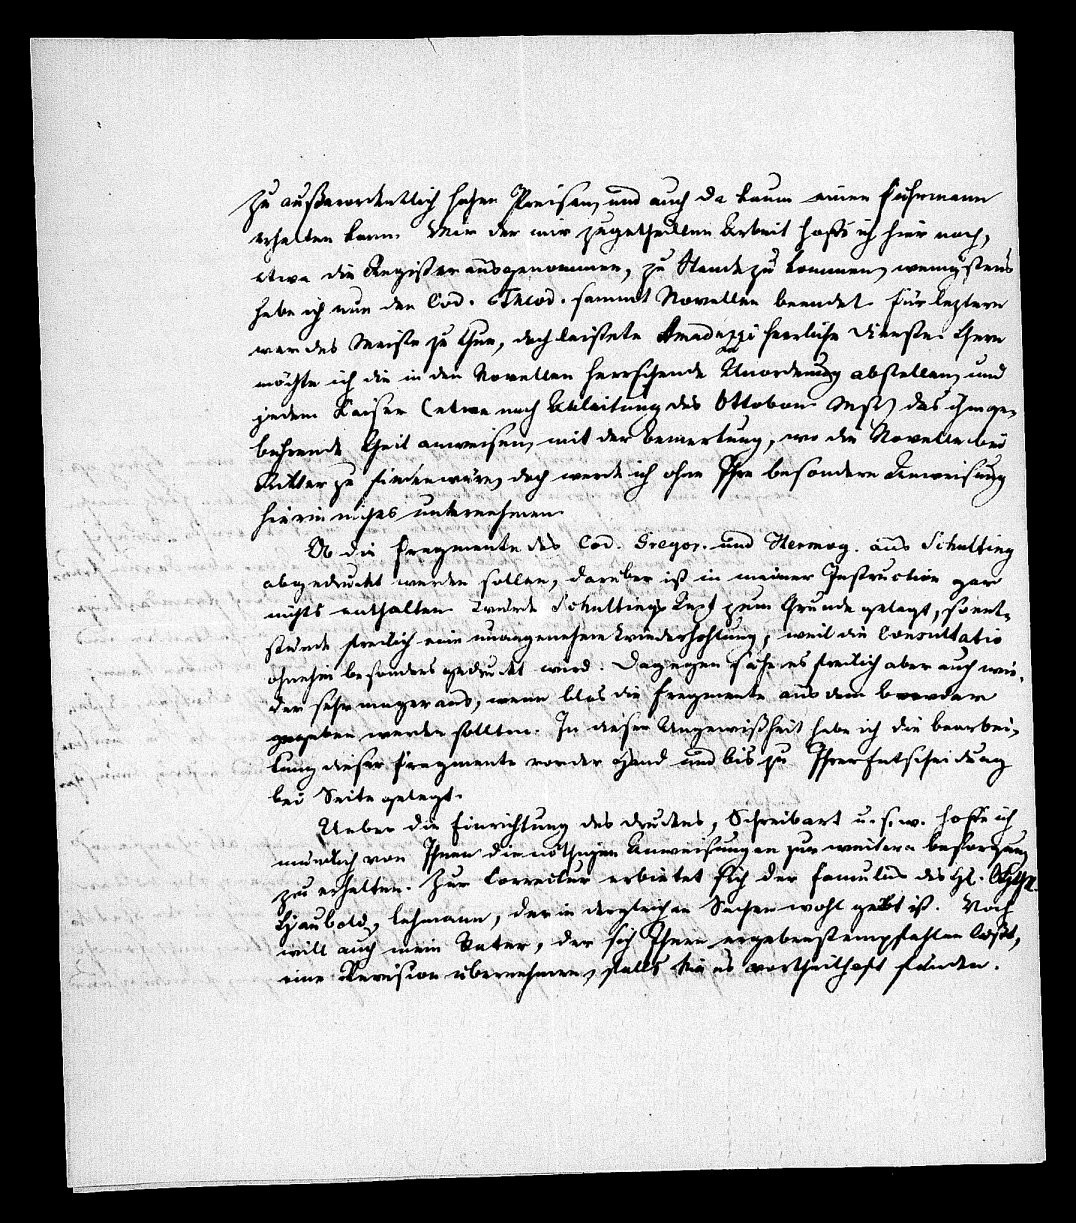 zu außerordentlich hohen Preisen, und auch da kaum einen Fuhrmann
erhalten kann. Mit der mir zugetheilten Arbeit hoffe ich hier noch,
etwa die Register ausgenommen, zu Stande zu kommen, wenigstens
habe ich nun den Cod. Theod. sammt Novellen beendet. Für leztere
war das Meiste zu thun, doch leistete Amaduzzi herrliche Dienste. Gern
möchte ich die in den Novellen herrschende Unordnung abstellen, und
jedem Kaiser (etwa nach Anleitung des Ottobon. Mss) das ihm ge-
bührende Theil anweisen, mit der Bemerkung, wo die Novelle bei
Ritter zu finden wäre, doch werde ich ohne Ihre besondere Anweisung
hierin nichts unternehmen.
Ob die Fragmente des Cod. Gregor. und Hermog. aus Schulting
abgedruckt werden sollen, darüber ist in meiner Instruction gar
nichts enthalten. Würde Schultings Text zum Grunde gelegt, so ent-
stünde freilich eine unangenehme Wiederhohlung, weil die Consultatio
ohnehin besonders gedruckt wird. Dagegen sähe es freilich aber auch wie-
der sehr mager aus, wenn blos die Fragmente aus dem Breviar
gegeben werden sollten. In dieser Ungewißheit habe ich die Bearbei-
tung dieser Fragmente vor der Hand und bis zu Ihrer Entscheidung
bei Seite gelegt.
Ueber die Einrichtung des Druckes, Schreibart u. s. w. hoffe ich
mündlich von Ihnen die nöthigen Anweisungen zur weitern Besorgung
zu erhalten. Zur Correctur erbietet sich der Famulus des H.
Haubold, Lehmann, der in dergleichen Sachen wohl geübt ist. Noch
will auch mein Vater, der sich Ihnen ergebenst empfehlen läßt,
eine Revision übernehmen, falls Sie es vortheilhaft fänden.